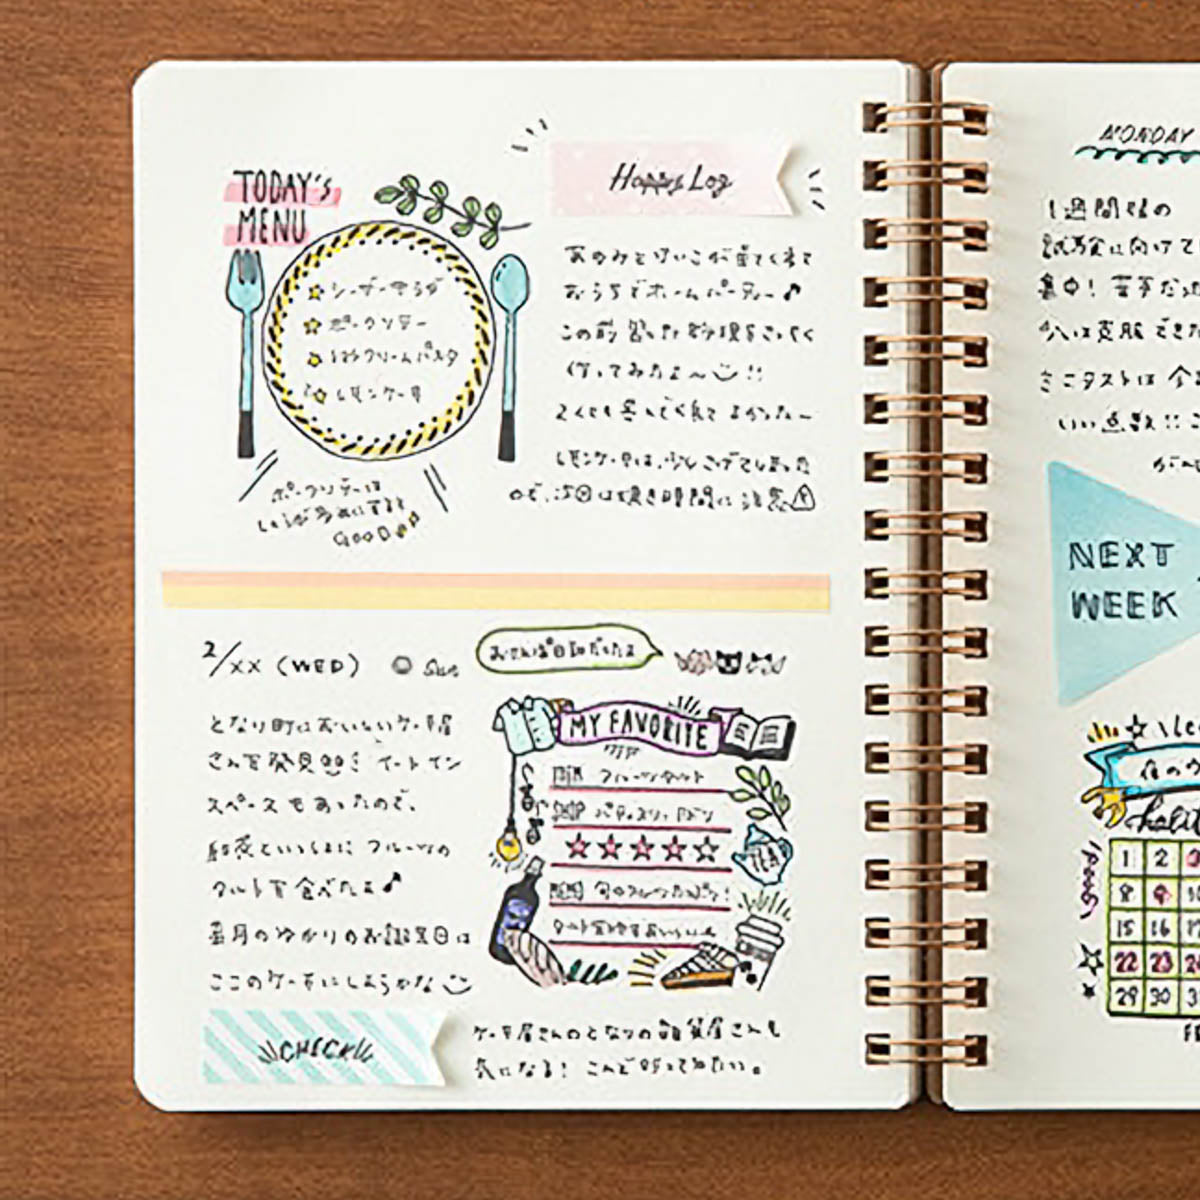 TODAY's
MENU
シーザーサラダ
ポークソテー
クリームパスタ
レモンケーキ
ポークソテーは
GOOD
Happy Log
おうちでホームパーティー♪
この前習った料理をさっそく
作ってみたよ〜!!
とくても喜んでくれてよかった〜
レモンケーキは、少しこげてしまった
ので、次回は焼き時間に注意
2/XX (WED)
Sun
おさんぽ日和だったよ
となり町においしいケーキ屋
さんを発見 イートイン
スペースもあったので、
紅茶といっしょにフルーツの
タルトを食べたよ♪
来月のゆかりのお誕生日は
ここのケーキにしようかな
MY FAVORITE
ITEM フルーツタルト
SHOP パティスリー
MEMO 旬のフルーツ
TEA
CHECK
ケーキ屋さんのとなりの雑貨屋さんも
気になる! こんど行ってみたい。
MONDAY
1週間後の
試験に向けて
集中! 苦手な
今は克服できた
ミニテストは
いい点数!!
NEXT
WEEK
1 2 3
8 9 10
15 16 17
22 23 24
29 30